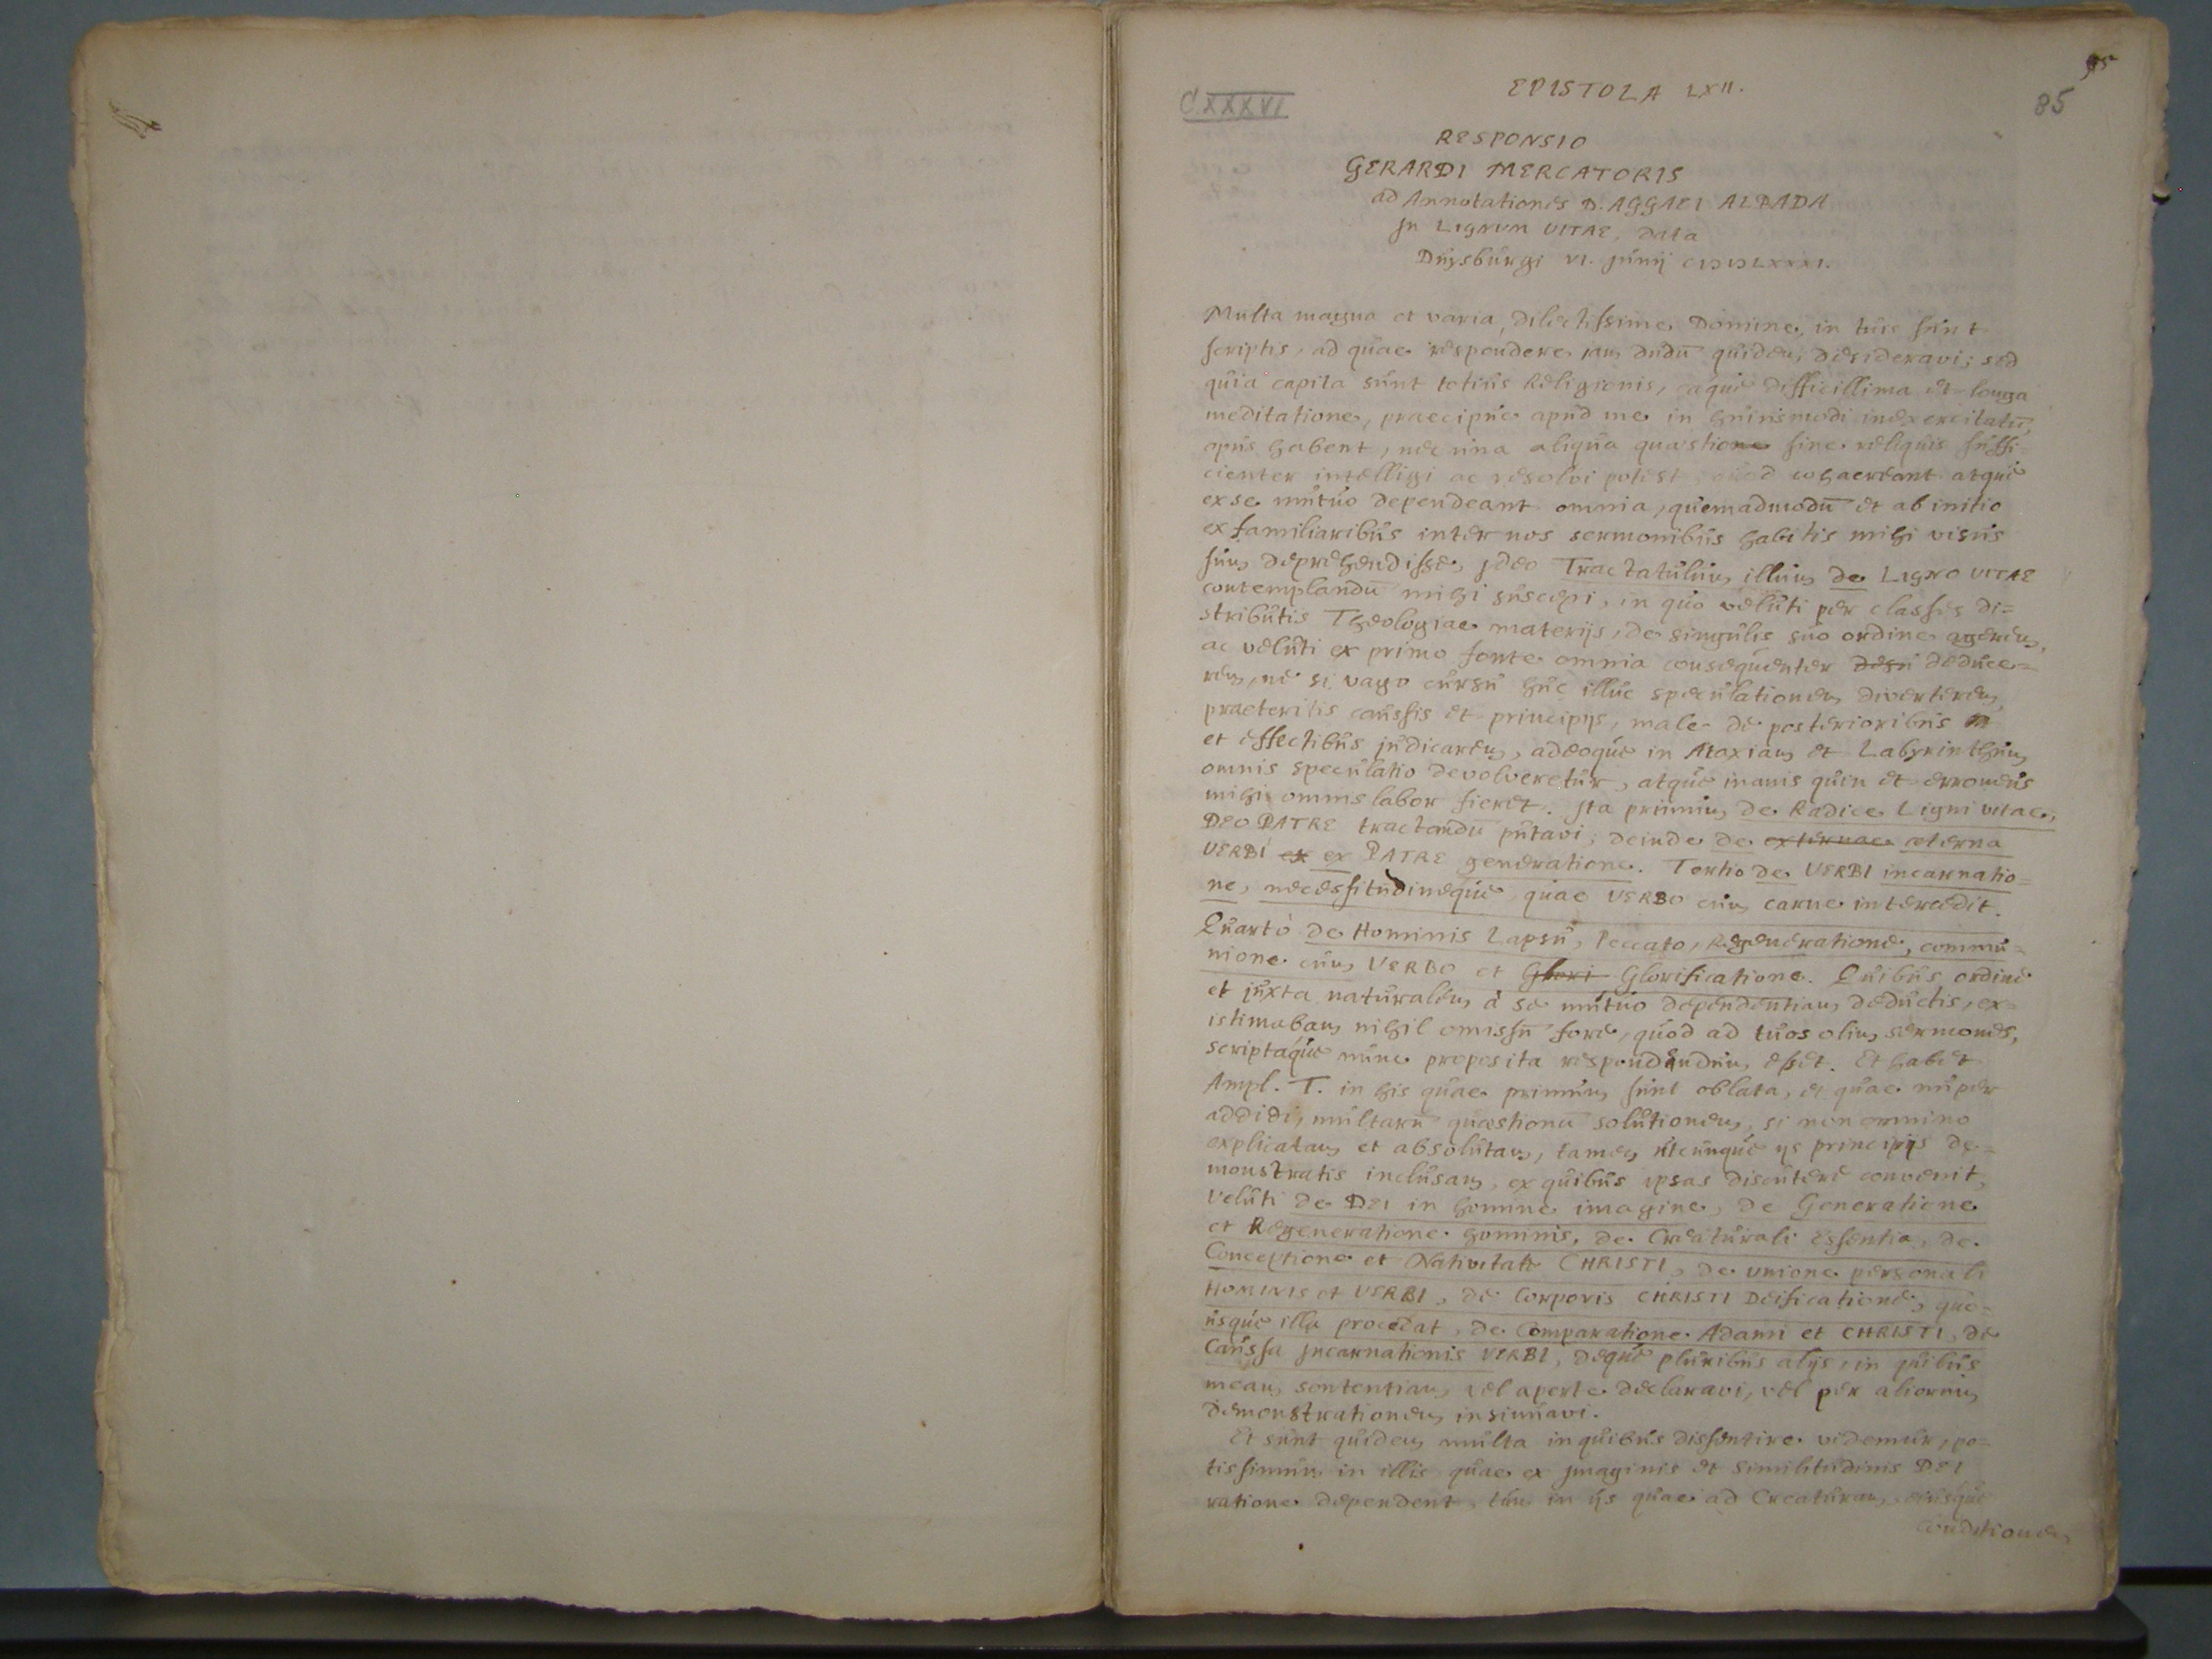 EPISTOLA LXII.
CXXXVI
85
RESPONSIO
GERARDI MERCATORIS
ad Annotationes D. AGGAEI ALBADA
In LIGNUM VITAE, data
Duysburgi VI. Junij CIƆIƆLXXXI.
Multa magna et varia, dilectissime Domine, in tuis sunt
scriptis, ad quae respondere jam dudū quidem desideravi; sed
quia capita sunt totius Religionis, eaque difficillima et longa
meditatione, praecipue apud me in huiusmodi inexercitatū,
opus habent, nec una aliqua quaestione sine reliquis suffi-
cienter intelligi ac resolvi potest, quod cohaereant atque
ex se mutuo dependeant omnia, quemadmodū et ab initio
ex familiaribus inter nos sermonibus habitis mihi visus
sum deprehendisse, Ideo Tractatulum illum de LIGNO VITAE
contemplandū mihi suscepi, in quo veluti per classes di=
stributis Theologiae materijs, de singulis suo ordine agerem,
ac veluti ex primo fonte omnia consequenter desu deduce=
rem, ne si vago cursu huc illuc speculationem diverterem,
praeteritis caussis et principijs, male de posterioribus
et effectibus judicarem, adeoque in Ataxiam et Labyrinthum
omnis speculatio devolveretur, atque inanis quin et erroneus
mihi omnis labor fieret. Ita primum de Radice Ligni vitae,
DEO PATRE tractandū putavi; deinde de externae aeterna
VERBI ex ex PATRE generatione. Tertio de VERBI incarnatio=
ne, necessitudineque quae VERBO cum carne intercedit.
Quartò de Hominis Lapsu, Peccato, Regeneratione, commu=
nione cum VERBO et Glori Glorificatione. Quibus ordine
et juxta naturalem à se mutuo dependentiam deductis, ex=
istimabam nihil omissū fore, quod ad tuos olim sermones,
scriptaque nunc proposita respondendum esset. Et habet
Ampl. T. in his quae primum sunt oblata, et quae nuper
addidi, multarū quaestionū solutionem, si non omnino
explicatam et absolutam, tamen utcunque ijs principijs de=
monstratis inclusam, ex quibus ipsas discutere convenit,
veluti de DEI in homine imagine, de Generatione
et Regeneratione hominis, de Creaturali Essentia, de
Conceptione et Nativitate CHRISTI, de unione personali
HOMINIS et VERBI, de Corporis CHRISTI Deificatione, quo=
usque illa procedat, de Comparatione Adami et CHRISTI, de
Caussa Incarnationis VERBI, deque pluribus alijs, in quibus
meam sententiam vel aperte declaravi, vel per aliorum
demonstrationem insinuavi.
Et sunt quidem multa in quibus dissentire videmur, po=
tissimum in illis quae ex Imaginis et Similitudinis DEI
ratione dependent, tum in ijs quae ad Creaturam, eiusque
conditionem